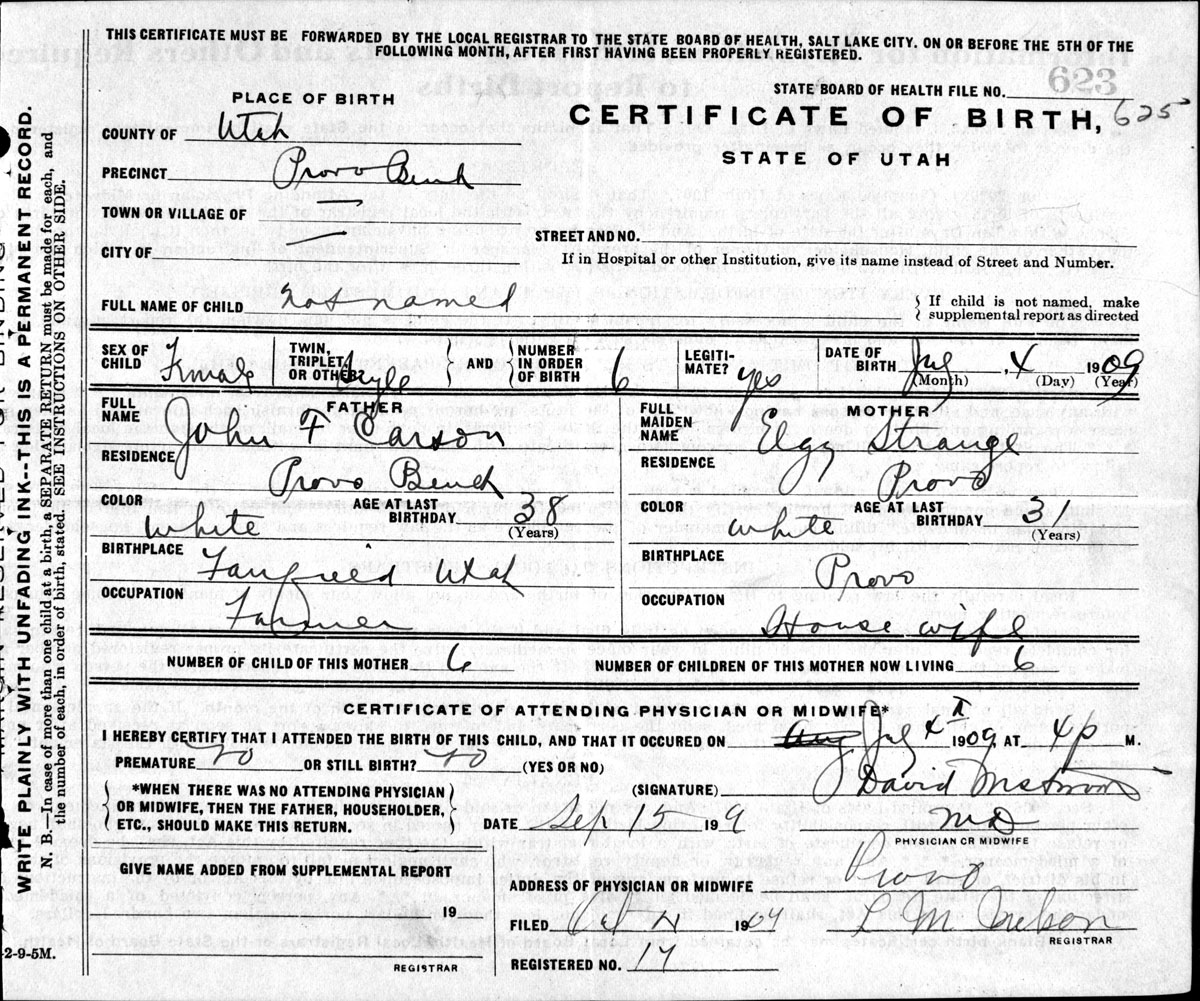 THIS CERTIFICATE MUST BE FORWARDED BY THE LOCAL REGISTRAR TO THE STATE BOARD OF HEALTH, SALT LAKE CITY. ON OR BEFORE THE 5TH OF THE
FOLLOWING MONTH, AFTER FIRST HAVING BEEN PROPERLY REGISTERED.
623
STATE BOARD OF HEALTH FILE NO.
PLACE OF BIRTH
CERTIFICATE OF BIRTH, 625
STATE OF UTAH
COUNTY OF Utah
PRECINCT Provo Bench
TOWN OR VILLAGE OF
STREET AND NO.
CITY OF
If in Hospital or other Institution, give its name instead of Street and Number.
FULL NAME OF CHILD Not named
If child is not named, make
supplemental report as directed
SEX OF CHILD Female TWIN, TRIPLET, OR OTHER? AND NUMBER IN ORDER OF BIRTH 6 LEGITI-MATE? yes DATE OF BIRTH 4 1909
(Month) (Day) (Year)
FATHER
FULL NAME John F Carson
RESIDENCE Provo Bench
COLOR White AGE AT LAST BIRTHDAY 38
(Years)
BIRTHPLACE Fairfield Utah
OCCUPATION Farmer
MOTHER
FULL MAIDEN NAME Strange
RESIDENCE Provo
COLOR White AGE AT LAST BIRTHDAY 31
(Years)
BIRTHPLACE Provo
OCCUPATION House wife
NUMBER OF CHILD OF THIS MOTHER 6
NUMBER OF CHILDREN OF THIS MOTHER NOW LIVING 6
CERTIFICATE OF ATTENDING PHYSICIAN OR MIDWIFE*
I HEREBY CERTIFY THAT I ATTENDED THE BIRTH OF THIS CHILD, AND THAT IT OCCURED ON Aug 4 1909, AT 4 p M.
PREMATURE no OR STILL BIRTH? no (YES OR NO)
*WHEN THERE WAS NO ATTENDING PHYSICIAN
OR MIDWIFE, THEN THE FATHER, HOUSEHOLDER,
ETC., SHOULD MAKE THIS RETURN.
(SIGNATURE) David
DATE Sep 15 19 9 MD
PHYSICIAN OR MIDWIFE
GIVE NAME ADDED FROM SUPPLEMENTAL REPORT
19
REGISTRAR
ADDRESS OF PHYSICIAN OR MIDWIFE Provo
FILED Oct 190
REGISTRAR
REGISTERED NO.
WRITE PLAINLY WITH UNFADING INK--THIS IS A PERMANENT RECORD.
N. B.—In case of more than one child at a birth, a SEPARATE RETURN must be made for each, and
the number of each, in order of birth, stated. SEE INSTRUCTIONS ON OTHER SIDE.
2-9-5M.